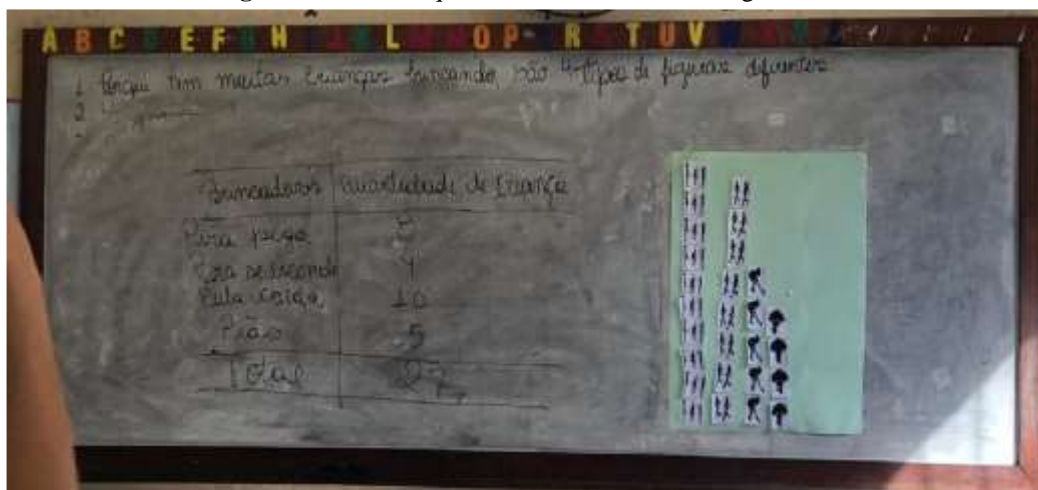 A B C E F H L O P R T U V
1 Porque tem muitas crianças brincando, são 4 tipos de figuras diferentes
2
Brincadeiras quantidade de criança
Pira pega
Pira se esconde 4
Pula corda 10
Pião 5
Total 27